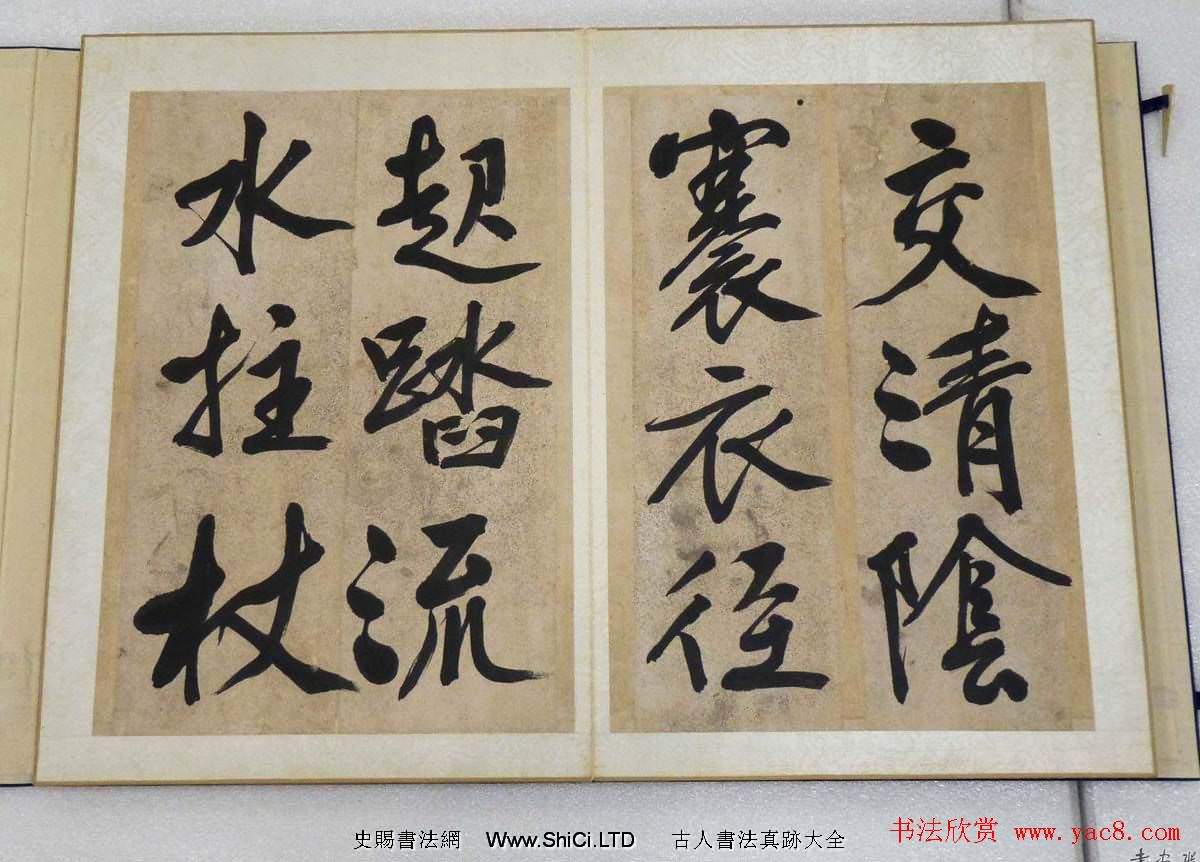 交清陰
褰衣徑
起踏流
水拄杖
史賜書法網 Www.ShiCi.LTD 古人書法真跡大全
书法欣赏 www.yac8.com